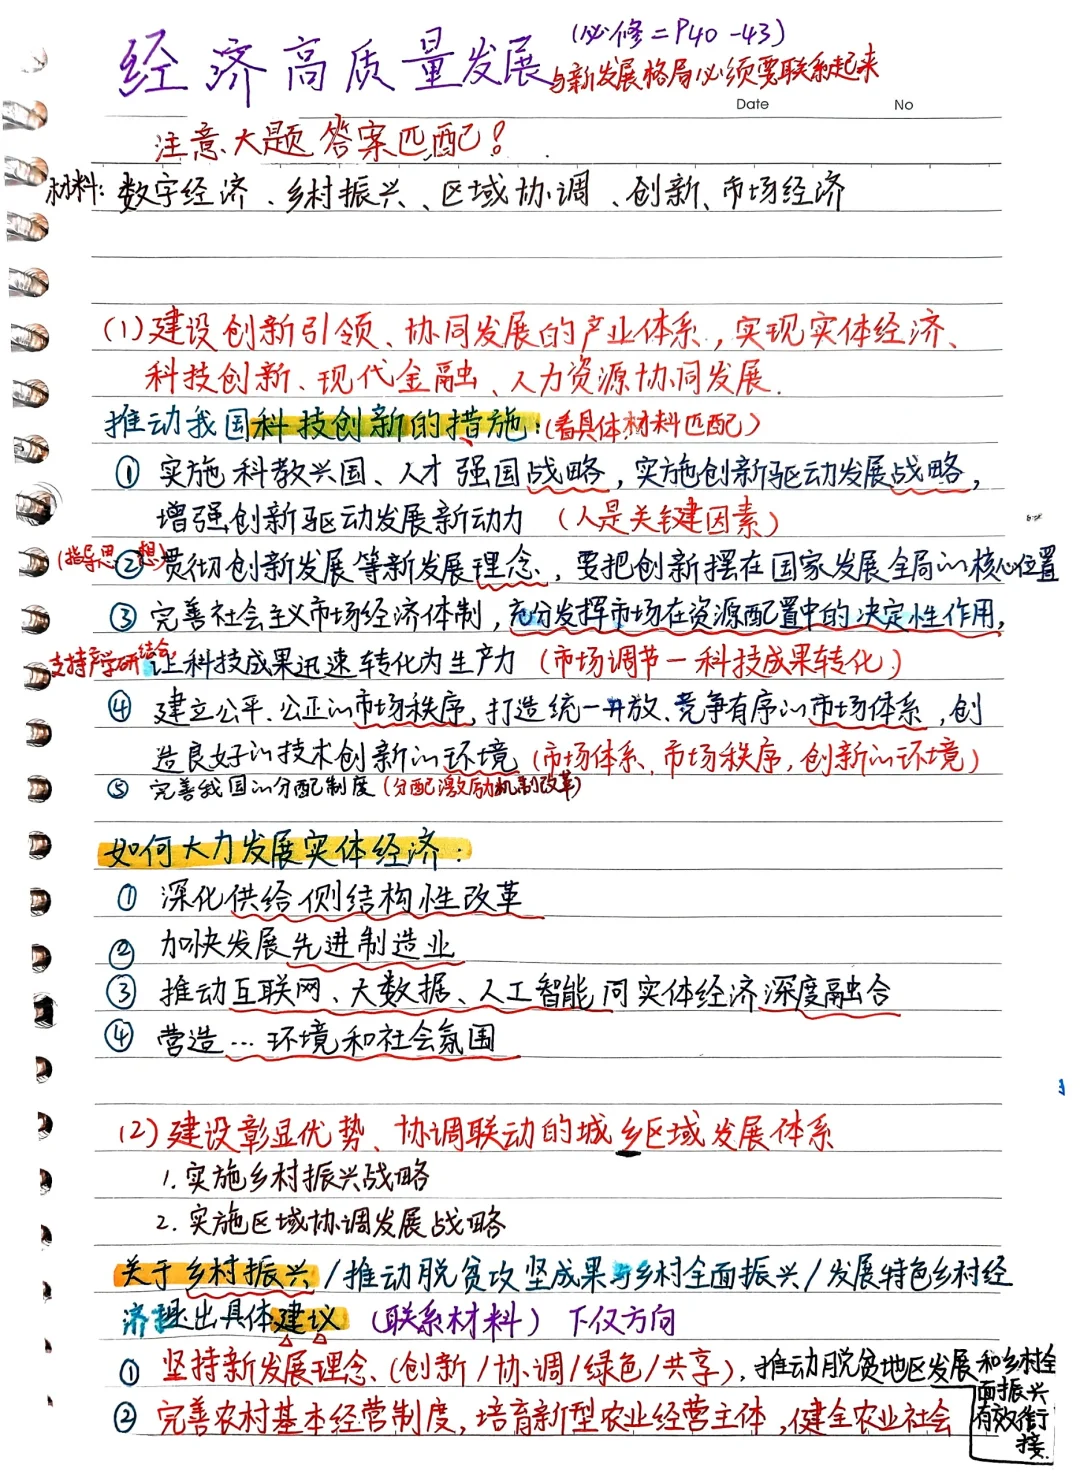 经济高质量发展 (必修二P40-43)
与新发展格局必须要联系起来
Date No
注意大题答案匹配!
材料: 数字经济、乡村振兴、区域协调、创新、市场经济
(1)建设创新引领、协同发展的产业体系,实现实体经济、
科技创新、现代金融、人力资源协同发展.
推动我国科技创新的措施:(看具体材料匹配)
① 实施科教兴国、人才强国战略,实施创新驱动发展战略,
增强创新驱动发展新动力 (人是关键因素)
(指导思想)② 贯彻创新发展等新发展理念,要把创新摆在国家发展全局的核心位置
③ 完善社会主义市场经济体制,充分发挥市场在资源配置中的决定性作用,
支持产学研结合 让科技成果迅速转化为生产力 (市场调节—科技成果转化)
④ 建立公平、公正的市场秩序,打造统一开放、竞争有序的市场体系,创
造良好的技术创新的环境 (市场体系、市场秩序,创新的环境)
⑤ 完善我国的分配制度 (分配激励机制改革)
如何大力发展实体经济:
① 深化供给侧结构性改革
② 加快发展先进制造业
③ 推动互联网、大数据、人工智能同实体经济深度融合
④ 营造…环境和社会氛围
(2)建设彰显优势、协调联动的城乡区域发展体系
1.实施乡村振兴战略
2.实施区域协调发展战略
关于乡村振兴/推动脱贫攻坚成果与乡村全面振兴/发展特色乡村经
济提出具体建议 (联系材料) 下仅方向
① 坚持新发展理念、(创新/协调/绿色/共享),推动脱贫地区发展和乡村全
面振兴
有效衔
接.
② 完善农村基本经营制度,培育新型农业经营主体,健全农业社会